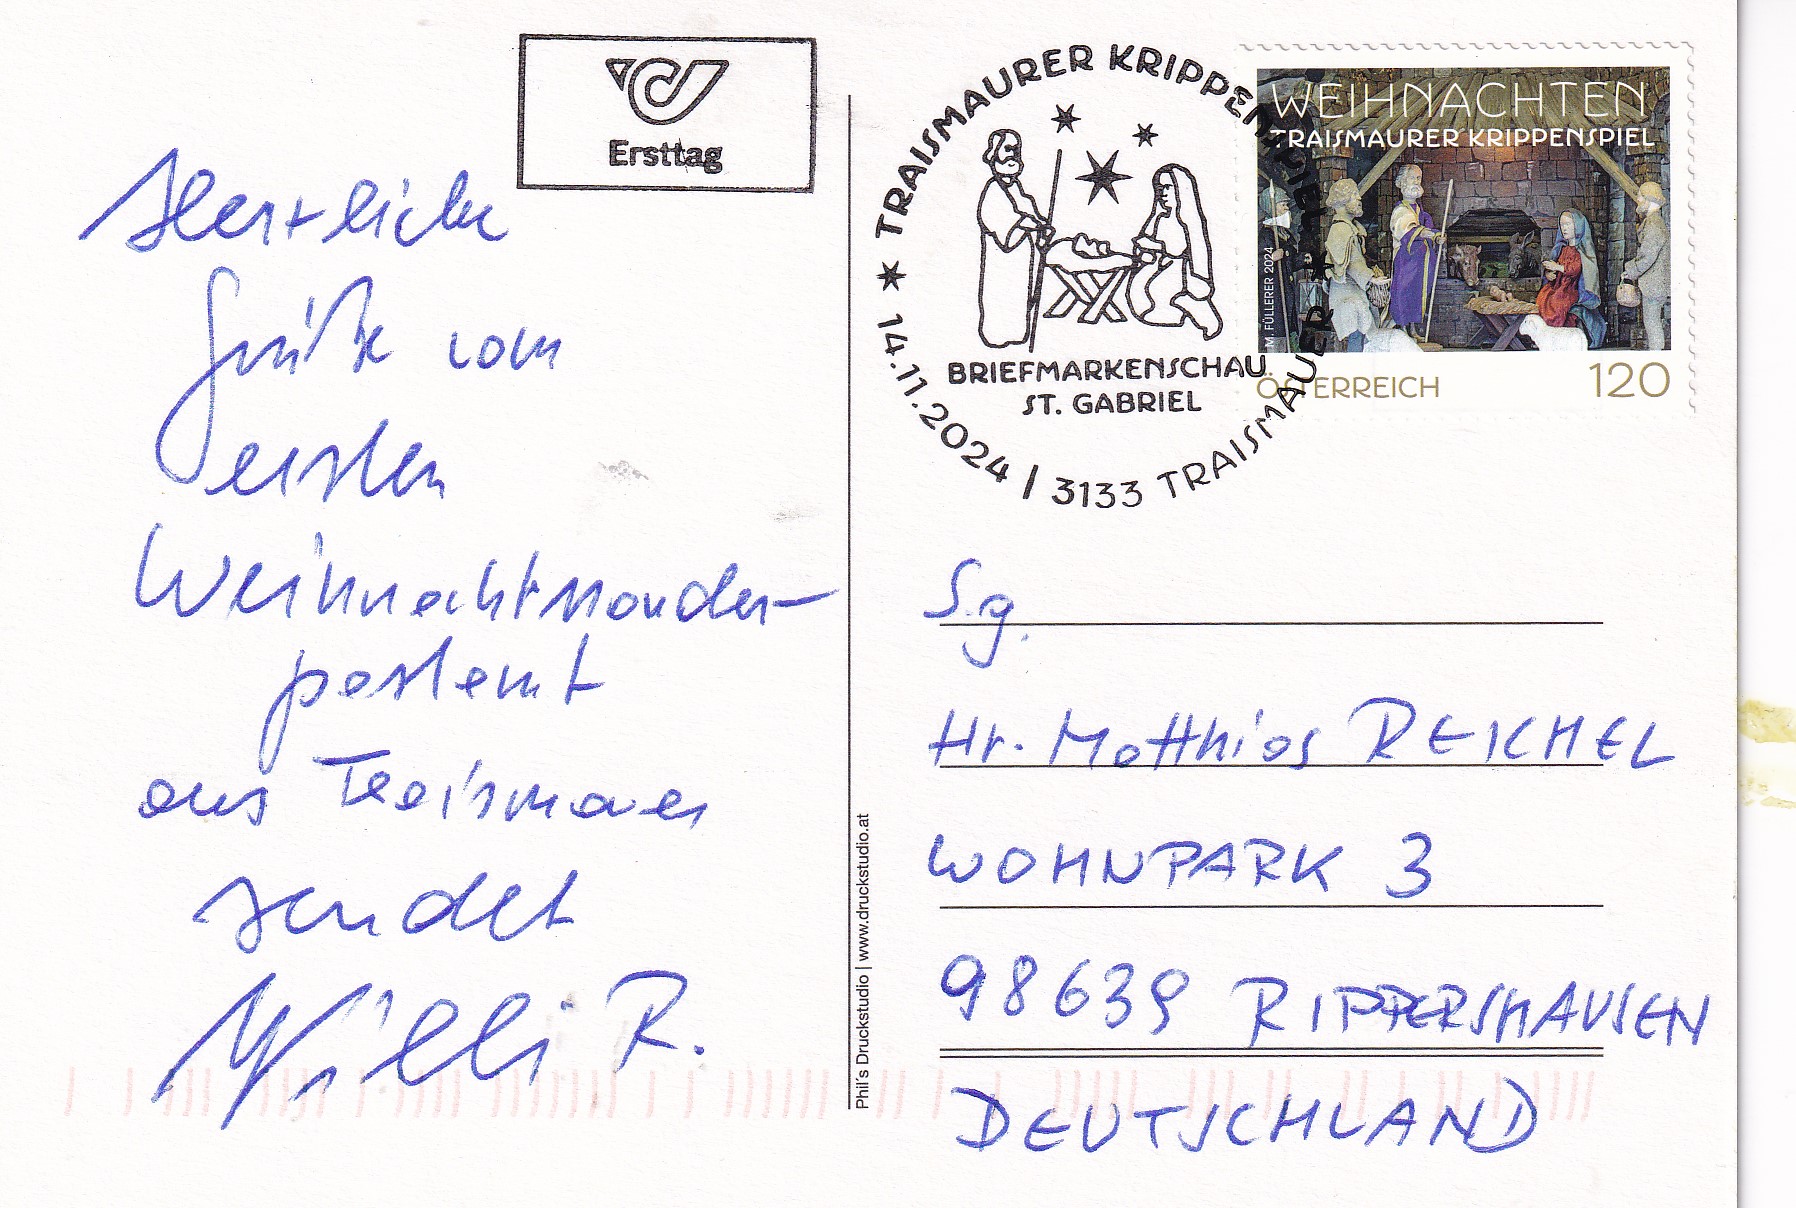 Ersttag
Herzliche
Grüße vom
ersten
Weihnachtssonder-
postamt
aus Traismauer
sendet
Willi R.
* TRAISMAURER KRIPPENSPIEL
BRIEFMARKENSCHAU
ST. GABRIEL
14.11.2024 / 3133 TRAISMAUER
WEIHNACHTEN
TRAISMAURER KRIPPENSPIEL
M. FÜLLERER 2024
ÖSTERREICH 120
S.g.
Hr. Matthias REICHEL
WOHNPARK 3
98639 RIPPERSHAUSEN
DEUTSCHLAND
Phil's Druckstudio | www.druckstudio.at